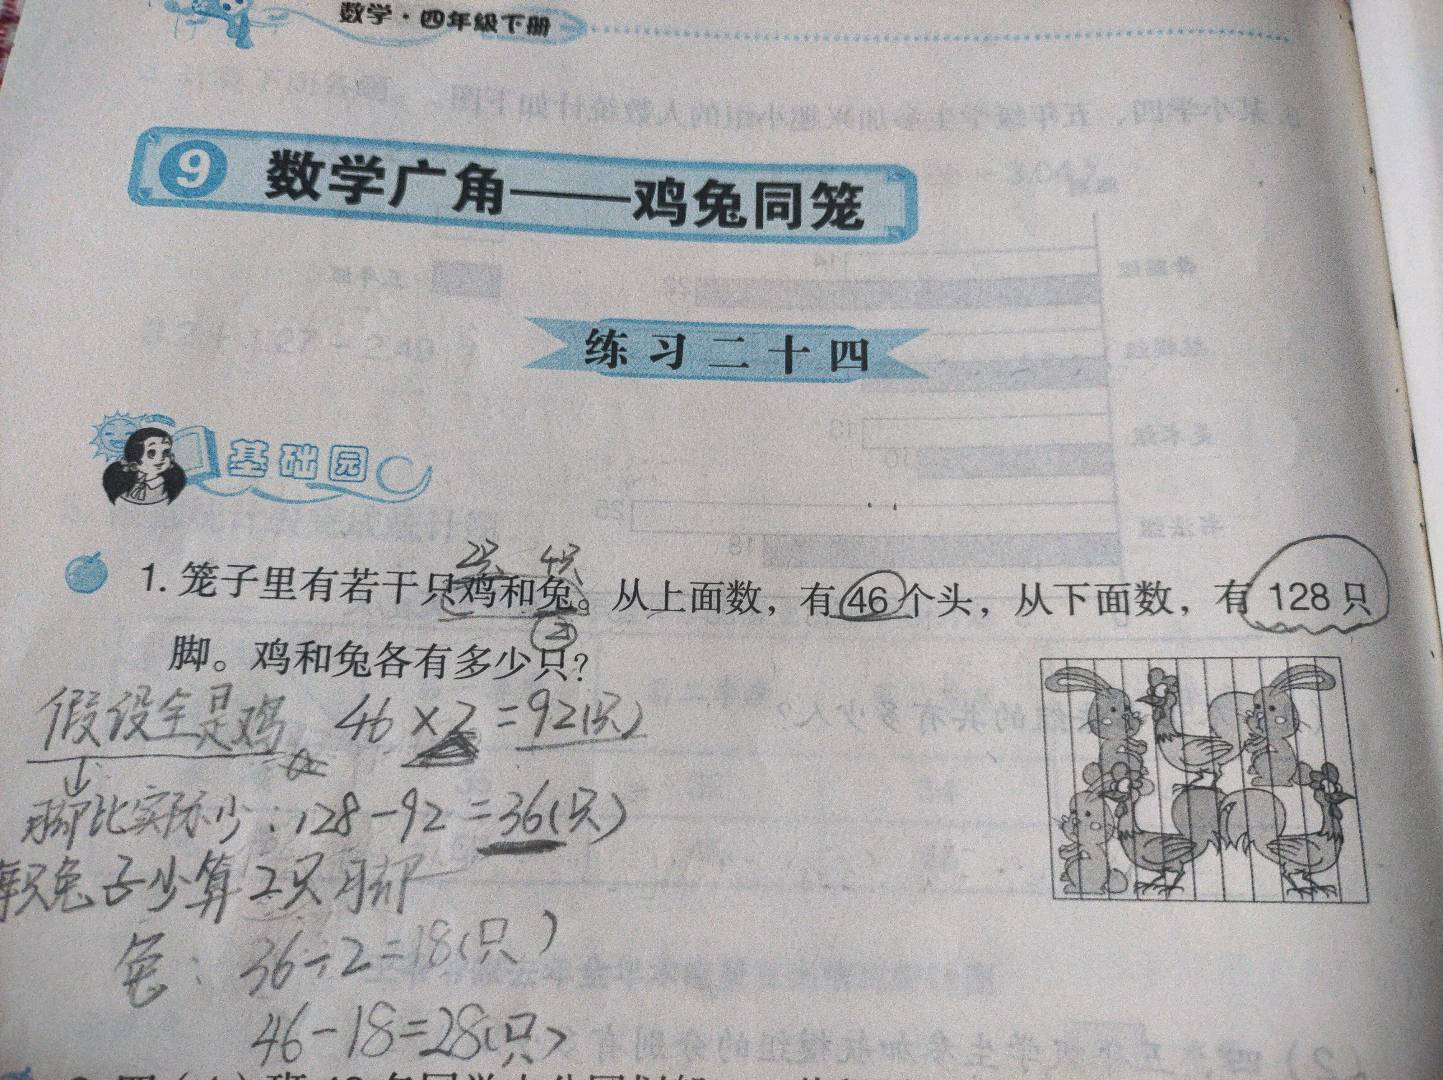 数学·四年级下册
9 数学广角——鸡兔同笼
练习二十四
基础园
2只 4只
1. 笼子里有若干只鸡和兔。从上面数，有46个头，从下面数，有128只
脚。鸡和兔各有多少只？
假设全是鸡 46×2=92(只)
脚比实际少：128-92=36(只)
每只兔子少算2只脚
兔：36÷2=18(只)
46-18=28(只)